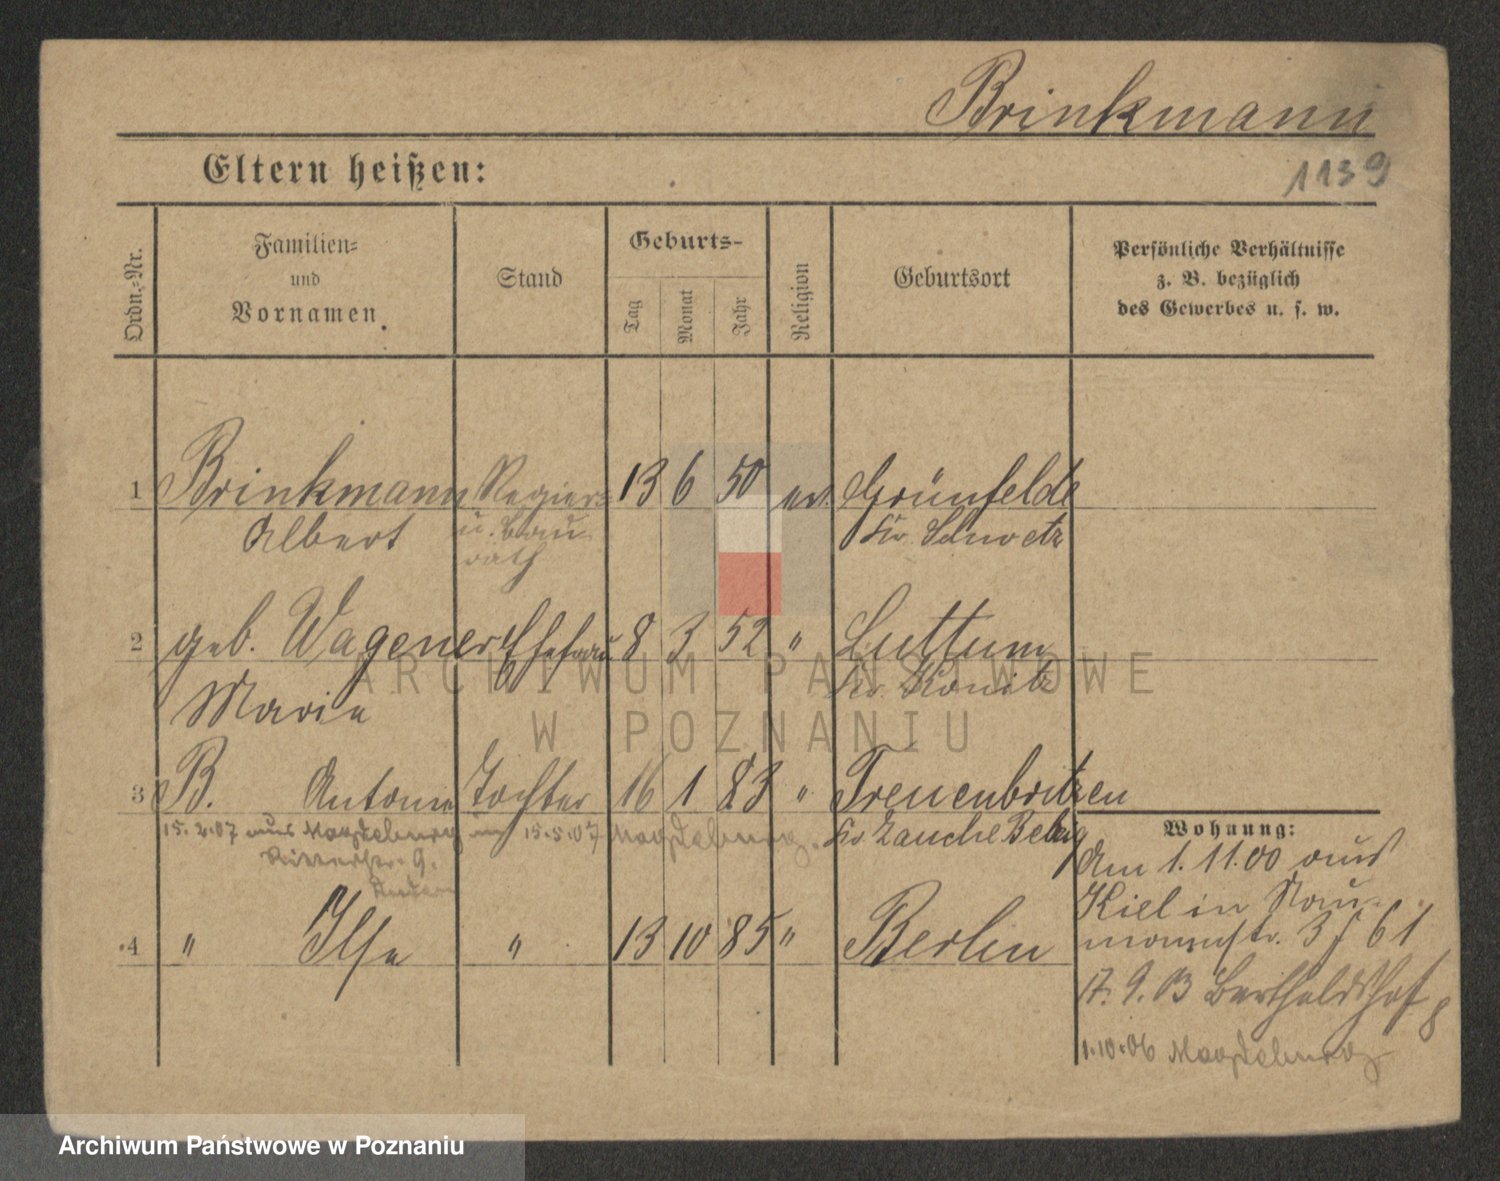 Brinkmann
Eltern heißen:
1139
Ordn.-Nr.
Familien-
und
Vornamen.
Stand
Geburts-
Tag
Monat
Jahr
Religion
Geburtsort
Persönliche Verhältnisse
z. B. bezüglich
des Gewerbes u. s. w.
1 Brinkmann Regier- 13 6 50 ev. Grünfelde
Albert u. Bau- Kr. Schwetz
rath
2 geb. Wagener Ehefrau 8 3 52 " Luttum
Marie Kr. Konitz
3 B. Antonie Tochter 16 1 83 " Treuenbritzen
15.2.07 aus Magdeburg 15.5.07 Magdeburg. Kr Zauche Belzig
Ritterstr. 9.
4 " Ilse " 13 10 85 " Berlin
Wohnung:
Am 1.11.00 aus
Kiel in Nau-
mannstr. 3 J 61
17.9.03 Bertholdshof 8
1.10.06 Magdeburg
ARCHIWUM PAŃSTWOWE
W POZNANIU
Archiwum Państwowe w Poznaniu